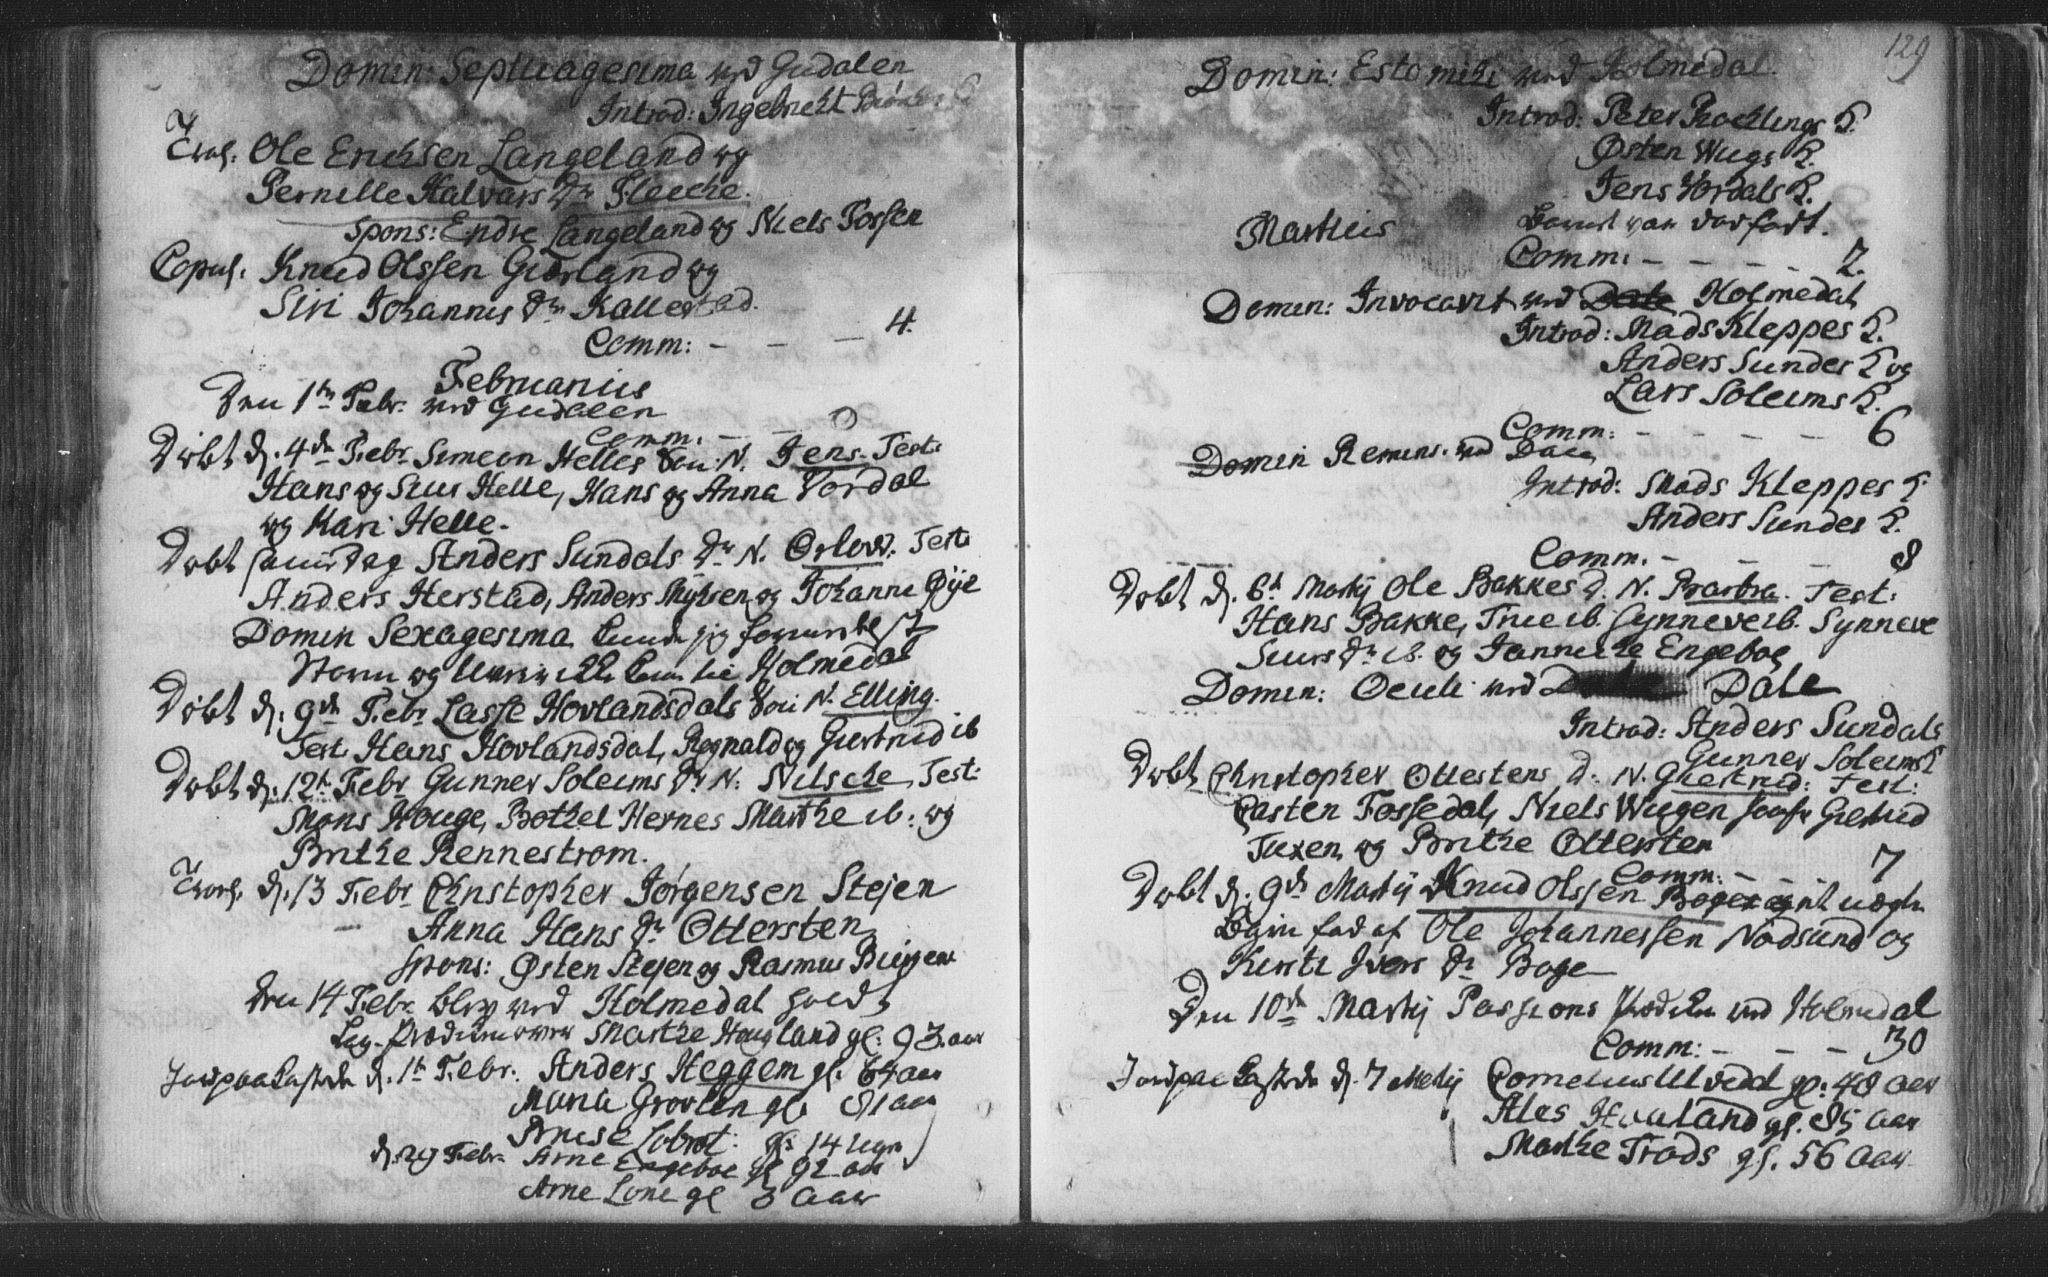 Domin: Septuagesima ved Gudalen
Introd: Ingebricht
Trol. Ole Erichsen Langeland og
Pernille Halvars Dr Fleche.
Spons: Endre Langeland og Niels Fossen
Copul. Knud Olssen Giørland og
Siri Johannis Dr Kallestad.
Comm: - - - 4.
Februarius
Den 1te Febr. ved Gudalen
Comm. - - 0
Døbt d. 4de Febr Simeon Helles Sön: N. Jens. Test:
Hans og Siur Helle, Hans og Anna Vordal
og Kari Helle.
Døbt samme Dag Anders Sundals Dr N. Test:
Anders Herstad, Anders og Johanne Øÿe
Domin Sexagesima kunde jeg formedelst
Storm og komme til Holmedal
Døbt d. 9de Febr Lasse Hovlandsdals Sön N. Elling.
Test Hans Hovlandsdal, Regnald og Giertrud ib
Døbt d. 12te Febr Gunner Soleims Dr N. Nilsche, Test:
Mons Houge, Bothel Hernes Marthe ib: og
Brithe Rennestrom.
Trol. d. 13 Febr Christopher Jørgensen Stejen
Anna Hans Dr Ottersten
Spons: Østen Stejen og Rasmus
Den 14 Febr. blev ved Holmedal holdt
Lig-Prædiken over Marthe Hougland gl: 93. aar
Jordpaakastede d. 1te Febr. Anders Heggem gl. 64 aar
Maria Grovlen gl. 81 aar
gl: 14 uger
d. 29 Febr. Arne Engeboe gl 92 aar
Arne Lone gl 3 Aar
129
Domin: Estomihi ved Holmedal.
Introd: Peter K.
Østen Wugs K.
Jens Vordals K.
Martius Barnet var
Comm: - - - - 2.
Domin: Invocavit ved Holmedal
Introd: Mads Kleppes K.
Anders Sundes K og
Lars Soleims K.
Comm: - - - - 6
Domin Remins. ved Dale
Introd: Mads Kleppes K
Anders Sundes K.
Comm. - - - 8
Døbt d. 6te Martij Ole Bakkes D. N. Test:
Hans Bakke, ib. Synneve ib. Synneve
Siurs Dr ib. og Janniche Engeboe
Domin: Oculi ved Dale
Introd: Anders Sundals
Gunner Soleims K
Døbt Christopher Ottestens D. N. Giertrud: Test:
Casten Fossedal, Niels Wugen Giertrud
Tuxen og Brithe Ottersten
Comm: - - - 7
Døbt d. 9de Martij Knud Olssen Boge uægte
af Ole Johannessen Nødsund og
Kirsti Ivers Dr Boge
Den 10de Martij Passions Prædiken ved Holmedal
Comm: - - - 30
Jordpaakastede d. 7 Martij Cornelius gl: 48 Aar
gl. 85 Aar
Marthe Trods gl. 56 Aar